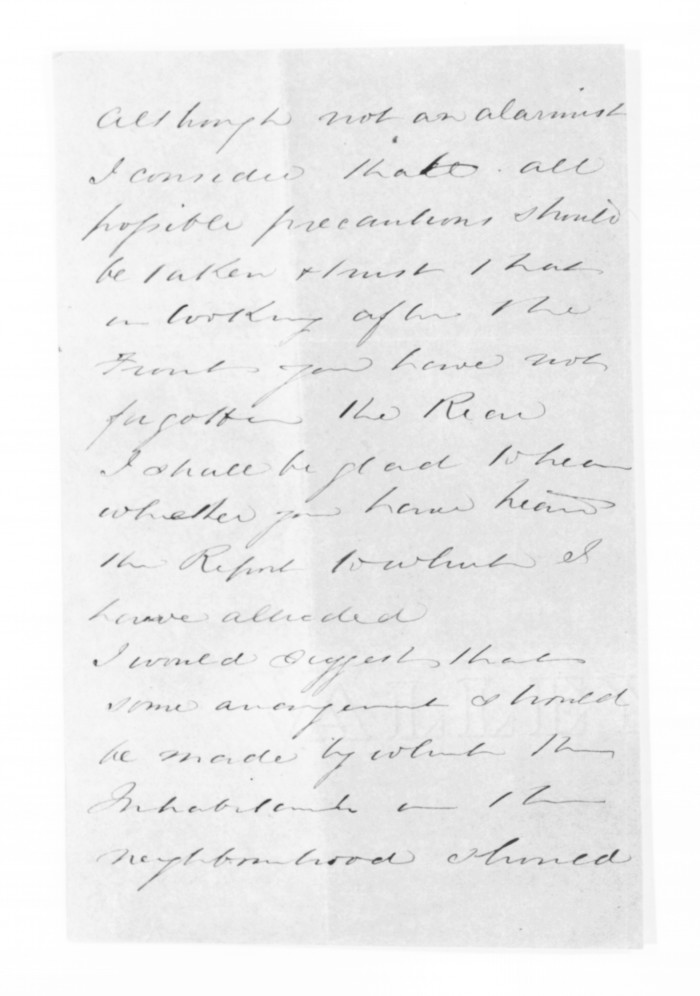 Although not an alarmist
I consider that all
possible precautions should
be taken & trust that
in looking after the
Front you have not
forgotten the Rear
I shall be glad to hear
whether you have heard
the Report to which I
have alluded
I would suggest that
some arrangement should
be made by which the
Inhabitants in the
neighbourhood should